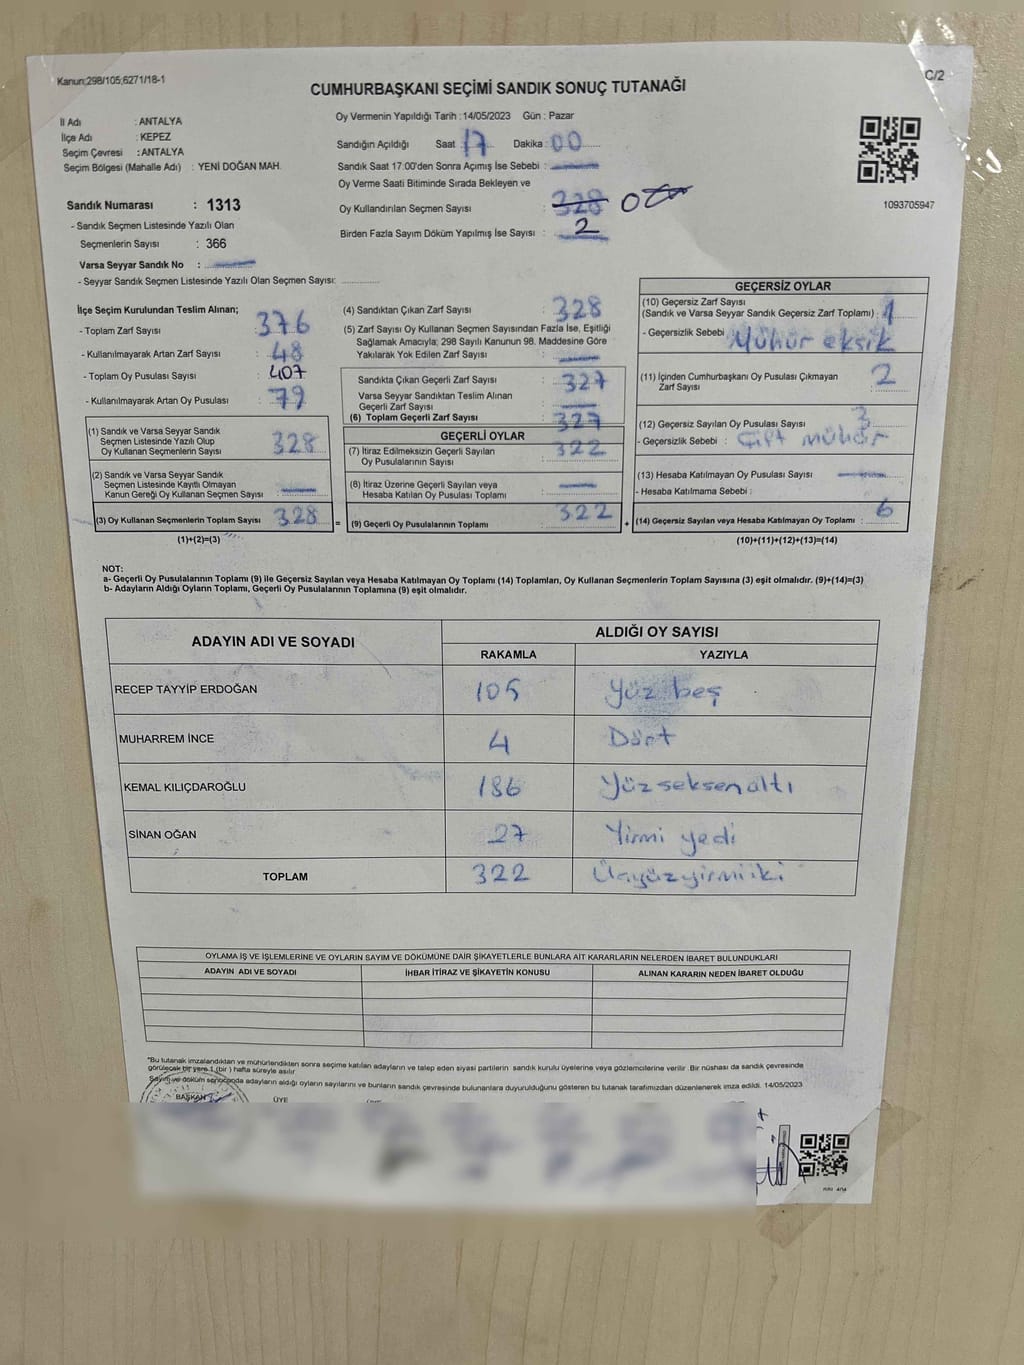 Kanun;298/105;6271/18-1
C/2
CUMHURBAŞKANI SEÇİMİ SANDIK SONUÇ TUTANAĞI
İl Adı : ANTALYA
İlçe Adı : KEPEZ
Seçim Çevresi : ANTALYA
Seçim Bölgesi (Mahalle Adı) : YENİ DOĞAN MAH.
Sandık Numarası : 1313
- Sandık Seçmen Listesinde Yazılı Olan
Seçmenlerin Sayısı : 366
Varsa Seyyar Sandık No :
- Seyyar Sandık Seçmen Listesinde Yazılı Olan Seçmen Sayısı:
Oy Vermenin Yapıldığı Tarih : 14/05/2023 Gün : Pazar
Sandığın Açıldığı Saat 17 Dakika : 00
Sandık Saat 17:00'den Sonra Açımış İse Sebebi :
Oy Verme Saati Bitiminde Sırada Bekleyen ve
Oy Kullandırılan Seçmen Sayısı : 328
Birden Fazla Sayım Döküm Yapılmış İse Sayısı : 2
1093705947
İlçe Seçim Kurulundan Teslim Alınan;
- Toplam Zarf Sayısı : 376
- Kullanılmayarak Artan Zarf Sayısı : 48
- Toplam Oy Pusulası Sayısı : 407
- Kullanılmayarak Artan Oy Pusulası : 79
(1) Sandık ve Varsa Seyyar Sandık
Seçmen Listesinde Yazılı Olup
Oy Kullanan Seçmenlerin Sayısı : 328
(2) Sandık ve Varsa Seyyar Sandık
Seçmen Listesinde Kayıtlı Olmayan
Kanun Gereği Oy Kullanan Seçmen Sayısı :
(3) Oy Kullanan Seçmenlerin Toplam Sayısı : 328 =
(1)+(2)=(3)
(4) Sandıktan Çıkan Zarf Sayısı : 328
(5) Zarf Sayısı Oy Kullanan Seçmen Sayısından Fazla İse, Eşitliği
Sağlamak Amacıyla; 298 Sayılı Kanunun 98. Maddesine Göre
Yakılarak Yok Edilen Zarf Sayısı :
Sandıkta Çıkan Geçerli Zarf Sayısı : 327
Varsa Seyyar Sandıktan Teslim Alınan
Geçerli Zarf Sayısı :
(6) Toplam Geçerli Zarf Sayısı : 327
GEÇERLİ OYLAR
(7) İtiraz Edilmeksizin Geçerli Sayılan
Oy Pusulalarının Sayısı : 322
(8) İtiraz Üzerine Geçerli Sayılan veya
Hesaba Katılan Oy Pusulası Toplamı :
(9) Geçerli Oy Pusulalarının Toplamı : 322 +
GEÇERSİZ OYLAR
(10) Geçersiz Zarf Sayısı
(Sandık ve Varsa Seyyar Sandık Geçersiz Zarf Toplamı) : 1
- Geçersizlik Sebebi : Mühür eksik
(11) İçinden Cumhurbaşkanı Oy Pusulası Çıkmayan
Zarf Sayısı : 2
(12) Geçersiz Sayılan Oy Pusulası Sayısı : 3
- Geçersizlik Sebebi : Çift mühür
(13) Hesaba Katılmayan Oy Pusulası Sayısı :
- Hesaba Katılmama Sebebi :
(14) Geçersiz Sayılan veya Hesaba Katılmayan Oy Toplamı : 6
(10)+(11)+(12)+(13)=(14)
NOT:
a- Geçerli Oy Pusulalarının Toplamı (9) ile Geçersiz Sayılan veya Hesaba Katılmayan Oy Toplamı (14) Toplamları, Oy Kullanan Seçmenlerin Toplam Sayısına (3) eşit olmalıdır. (9)+(14)=(3)
b- Adayların Aldığı Oyların Toplamı, Geçerli Oy Pusulalarının Toplamına (9) eşit olmalıdır.
ADAYIN ADI VE SOYADI ALDIĞI OY SAYISI
RAKAMLA YAZIYLA
RECEP TAYYİP ERDOĞAN 105 Yüz beş
MUHARREM İNCE 4 Dört
KEMAL KILIÇDAROĞLU 186 Yüzseksenaltı
SİNAN OĞAN 27 Yirmi yedi
TOPLAM 322 Üçyüzyirmiiki
OYLAMA İŞ VE İŞLEMLERİNE VE OYLARIN SAYIM VE DÖKÜMÜNE DAİR ŞİKAYETLERLE BUNLARA AİT KARARLARIN NELERDEN İBARET BULUNDUKLARI
ADAYIN ADI VE SOYADI İHBAR İTİRAZ VE ŞİKAYETİN KONUSU ALINAN KARARIN NEDEN İBARET OLDUĞU
*Bu tutanak imzalandıktan ve mühürlendikten sonra seçime katılan adayların ve talep eden siyasi partilerin sandık kurulu üyelerine veya gözlemcilerine verilir. Bir nüshası da sandık çevresinde
görülecek bir yere 1 (bir ) hafta süreyle asılır
Sayım ve döküm sonucunda adayların aldığı oyların sayılarını ve bunların sandık çevresinde bulunanlara duyurulduğunu gösteren bu tutanak tarafımızdan düzenlenerek imza edildi. 14/05/2023
BAŞKAN ÜYE